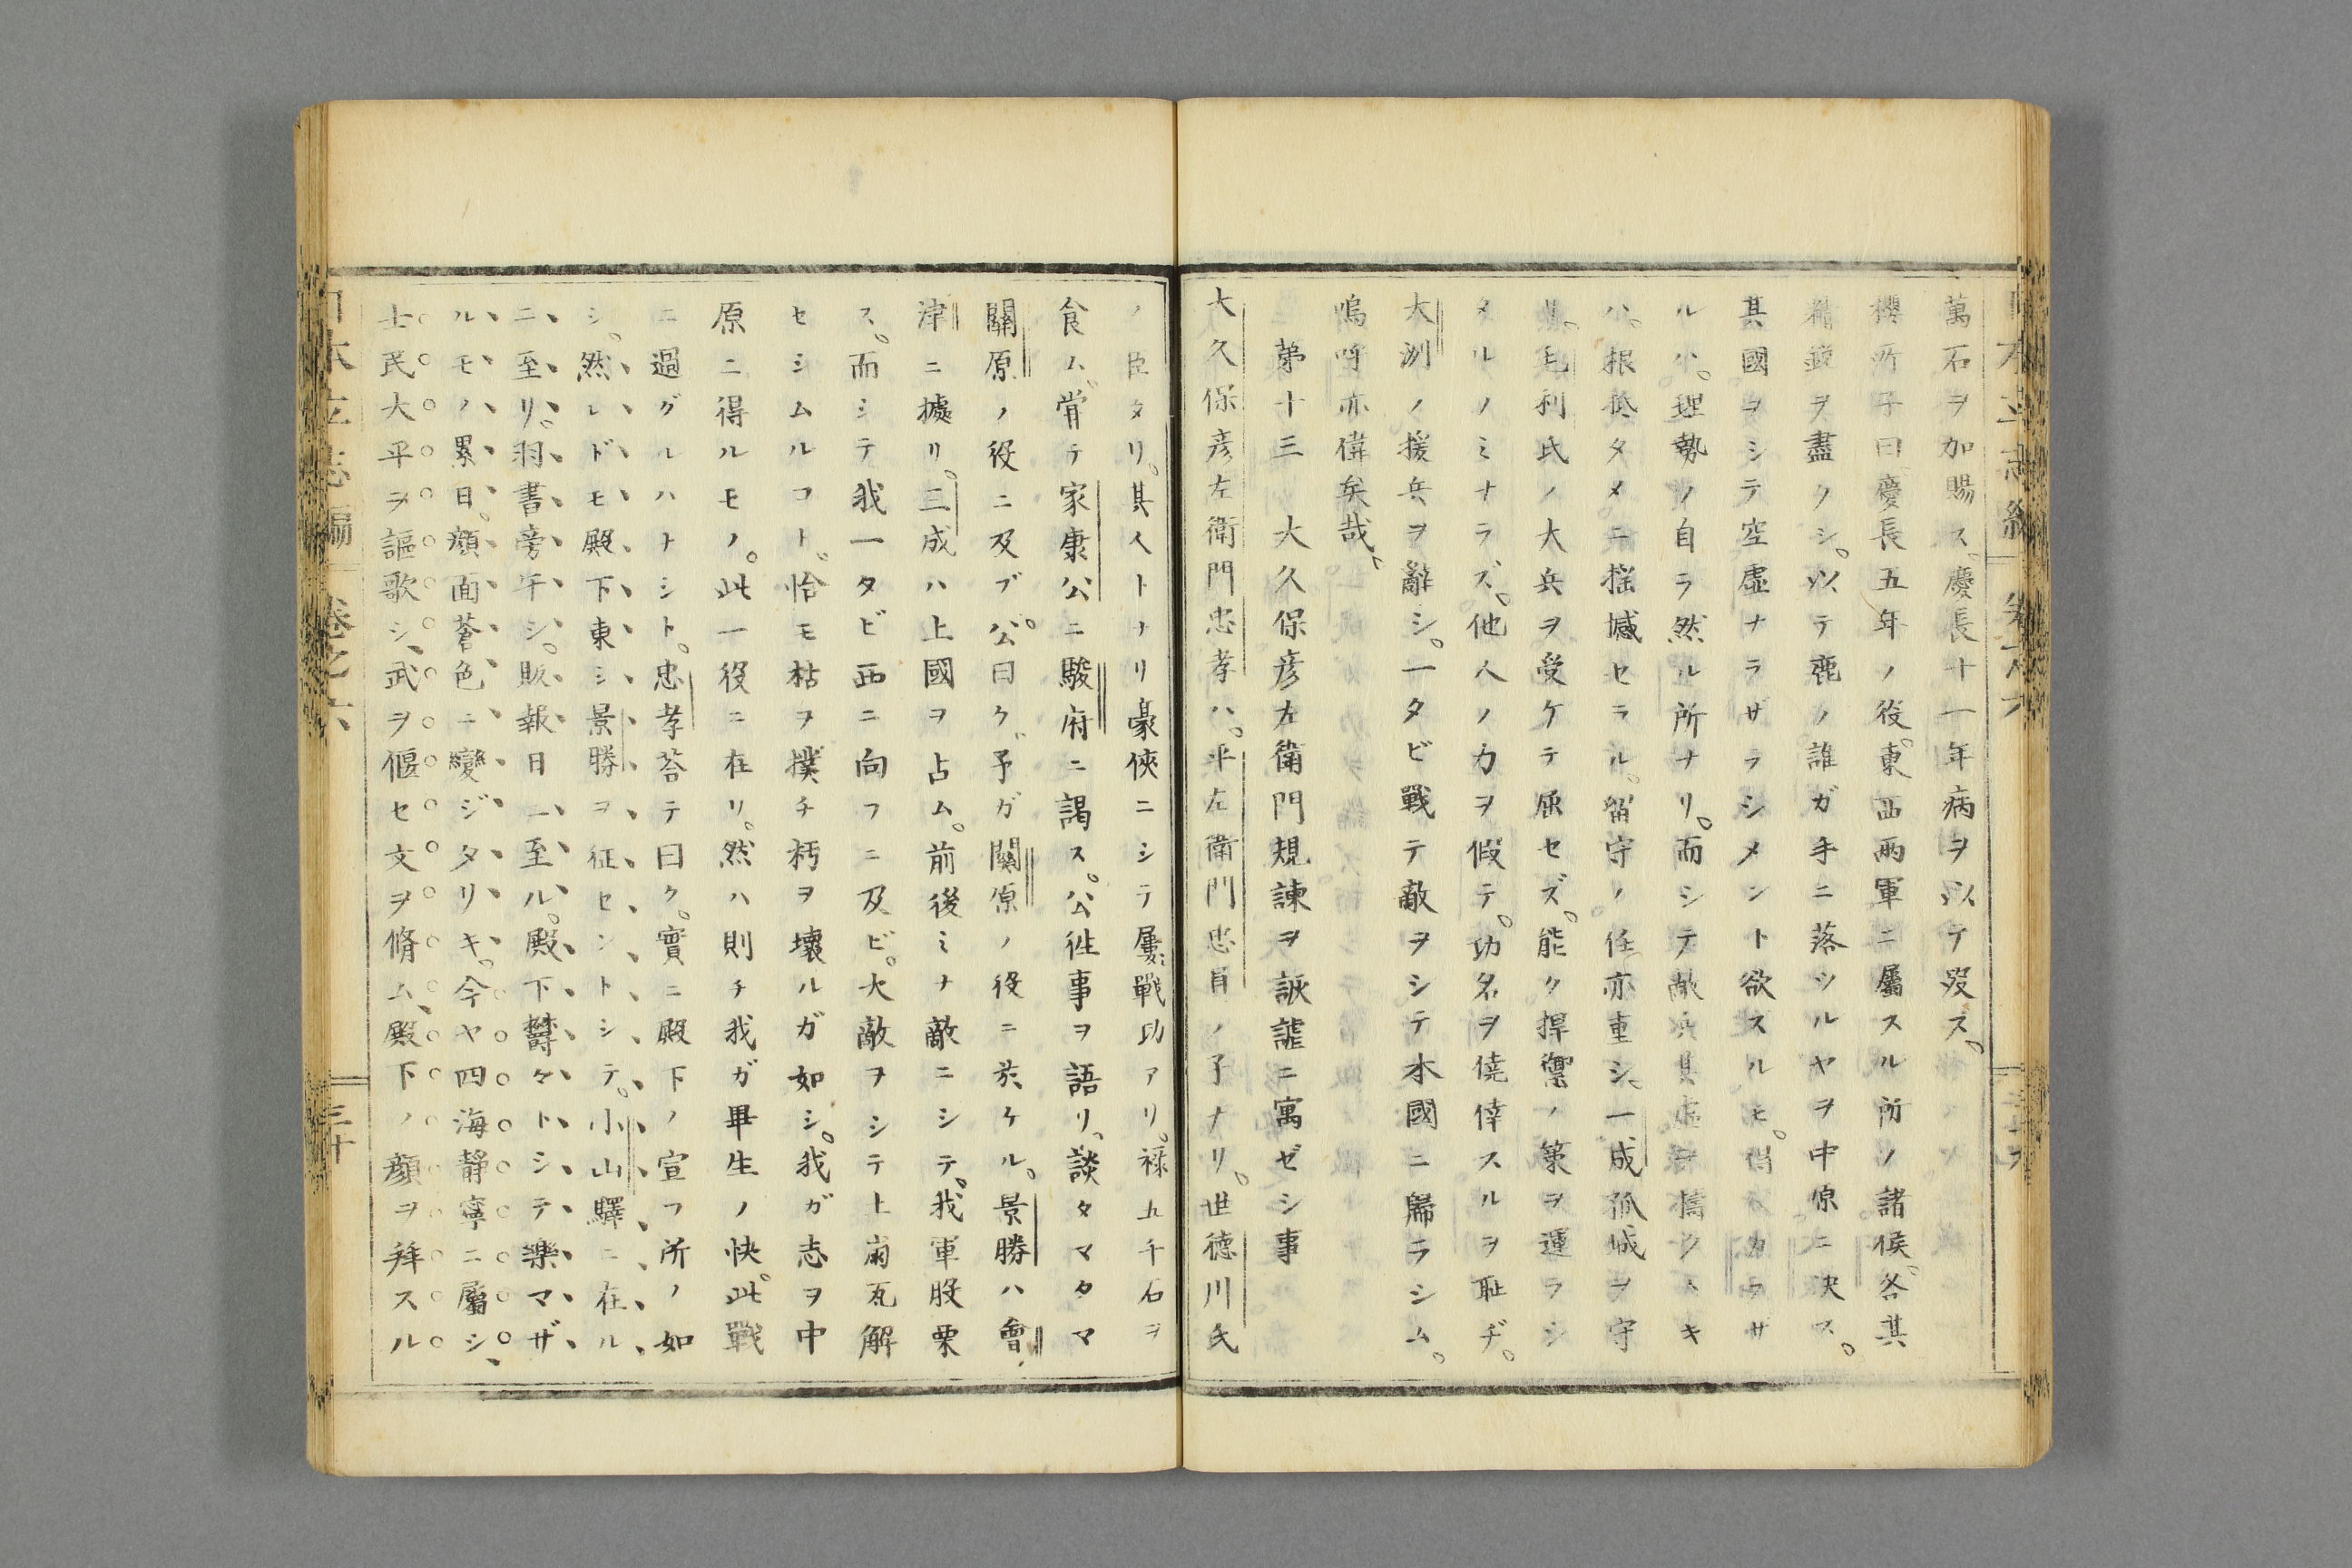 萬石ヲ加賜ス。慶長十一年病ヲ以テ歿ス。
櫻所子曰慶長五年ノ役。東西兩軍ニ屬スル所ノ諸侯。各其
精鋭ヲ盡クシ。以テ鹿ノ誰ガ手ニ落ツルヤヲ中原ニ決ス。
其國ヲシテ空虛ナラザラシメント欲スルモ。得ベカラザ
ルハ。理勢ノ自ラ然ル所ナリ。而シテ敵兵其虛ヲ擣クトキ
ハ。根柢タメニ搖撼セラル。留守ノ任亦重シ。一成孤城ヲ守
リ。毛利氏ノ大兵ヲ受ケテ屈セズ。能ク捍禦ノ策ヲ運ラシ
タルノミナラズ。他人ノ力ヲ假テ。功名ヲ僥倖スルヲ恥ヂ。
大洲ノ援兵ヲ辭シ。一タビ戰テ敵ヲシテ本國ニ歸ラシム。
嗚呼亦偉矣哉。
第十三 大久保彦左衛門規諫ヲ詼謔ニ寓ゼシ事
大久保彦左衛門忠孝ハ。平左衛門忠員ノ子ナリ。世德川氏
ノ臣タリ。其人トナリ豪俠ニシテ屢〻戰功アリ。祿五千石ヲ
食ム。甞テ家康公ニ駿府ニ謁ス。公徃事ヲ語リ。談タマタマ
關原ノ役ニ及ブ。公曰ク。予ガ關原ノ役ニ於ケル。景勝ハ會
津ニ據リ。三成ハ上國ヲ占ム。前後ミナ敵ニシテ。我軍股栗
ス。而シテ我一タビ西ニ向フニ及ビ。大敵ヲシテ土崩瓦解
セシムルコト。恰モ枯ヲ摸チ朽ヲ壞ルガ如シ。我ガ志ヲ中
原ニ得ルモノ。此一役ニ在リ。然ハ則チ我ガ畢生ノ快。此戰
ニ過グルハナシト。忠孝荅テ曰ク。實ニ殿下ノ宣フ所ノ如
シ。然レドモ殿下東シ景勝ヲ征セントシテ。小山驛ニ在ル
ニ至リ。羽書旁午シ。販報日ニ至ル。殿下欝々トシテ樂マザ
ルモノ累日。顏面蒼色ニ變ジタリキ。今ヤ四海靜寧ニ屬シ、
士民大平ヲ謳歌シ、武ヲ偃セ文ヲ脩ム、殿下ノ顏ヲ拜スル
三十